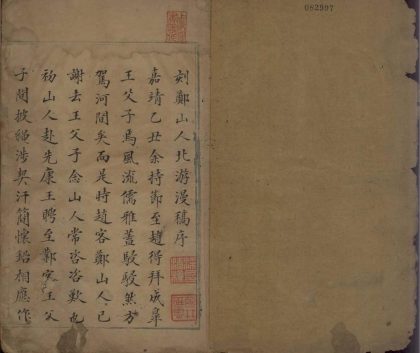 刻鄭山人北游漫稿序
嘉靖乙丑余持節至趙得拜成皋
王父子焉風流儒雅蓋駸駸然方
駕河間矣而是時趙客鄭山人已
謝去王父子念山人常咨咨歎也
山人赴先康王聘至鄭王父
子間披紹涉契汗簡懷珆相應作
082997